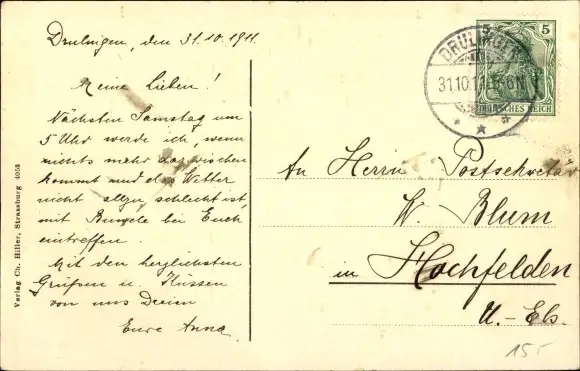 Drulingen, den 31.10.1911.
Meine Lieben!
Nächsten Samstag um
5 Uhr werde ich, wenn
nichts mehr dazwischen
kommt und das Wetter
nicht allzu schlecht ist,
mit Bumele bei Euch
eintreffen.
Mit den herzlichsten
Grüßen u. Küssen
von uns Dreien
Eure Anna
Verlag Ch. Hiller, Strassburg 4053
DRULINGEN
31.10.11. 5-6N
5
DEUTSCHES REICH
An Herrn Postsekretär
W. Blum
in Hochfelden
U.-Els.
15.-